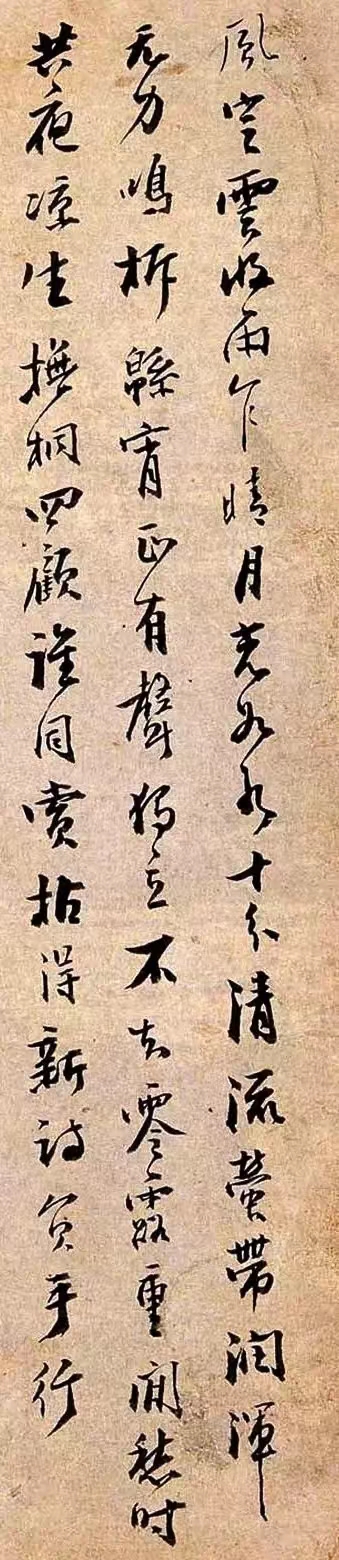 風定雲收雨乍晴月光如水十分清流螢帶潤渾
無力鳴柝緜宵正有聲獨立不知零露重閒愁時
共夜涼生撫桐四顧誰同賞拈得新詩負手行